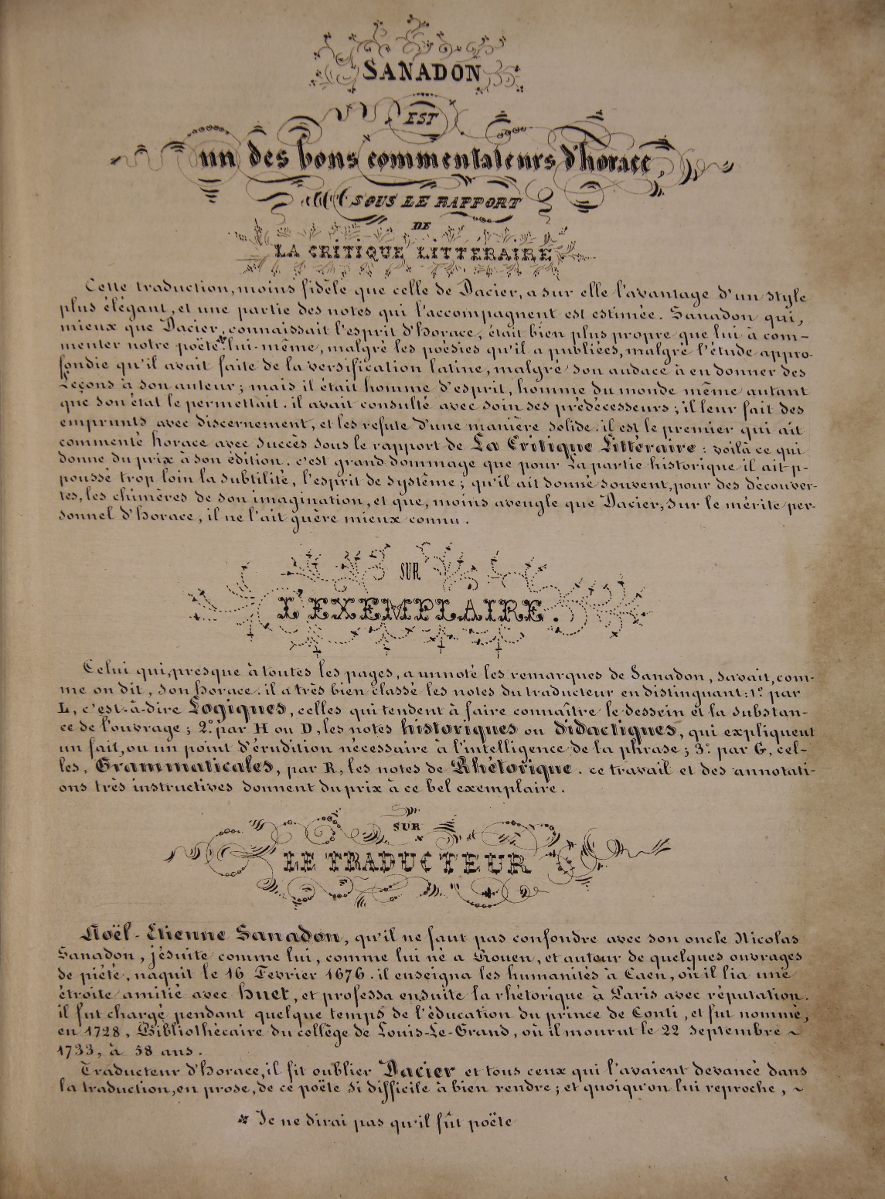 SANADON
EST
un des bons commentateurs d'horace,
SOUS LE RAPPORT
DE
LA CRITIQUE LITTÉRAIRE
Cette traduction, moins fidèle que celle de Dacier, a sur elle l'avantage d'un style
plus élégant, et une partie des notes qui l'accompagnent est estimée. Sanadon qui,
mieux que Dacier, connaissait l'esprit d'horace, était bien plus propre que lui à com-
menter notre poëte * lui-même, malgré les poësies qu'il a publiées, malgré l'étude appro-
fondie qu'il avait faite de la versification latine, malgré son audace à en donner des
Leçons à son auteur; mais il était homme d'esprit, homme du monde même autant
que son état le permettait. il avait consulté avec soin ses prédécesseurs; il leur fait des
emprunts avec discernement, et les refute d'une manière solide. il est le premier qui ait
commenté horace avec succès sous le rapport de La Critique Littéraire : voilà ce qui
donne du prix à son édition. c'est grand dommage que pour la partie historique il ait p-
poussé trop loin la subtilité, l'esprit de système; qu'il ait donné souvent, pour des découver-
tes, les chimères de son imagination, et que, moins aveugle que Dacier, sur le mérite per-
sonnel d'horace, il ne l'ait guère mieux connu.
SUR
L'EXEMPLAIRE.
Celui qui, presque à toutes les pages, a annoté les remarques de Sanadon, savait, com-
me on dit, son horace. il a très bien classé les notes du traducteur en distinguant: 1º. par
L, c'est-à-dire Logiques, celles qui tendent à faire connaître le dessein et la substan-
ce de l'ouvrage; 2º. par H ou D, les notes historiques ou didactiques, qui expliquent
un fait, ou un point d'érudition nécessaire à l'intelligence de la phrase; 3º. par G, cel-
les, Grammaticales, par R, les notes de Rhétorique. ce travail et des annotati-
ons très instructives donnent du prix à ce bel exemplaire.
SUR
LE TRADUCTEUR
Noël-Etienne Sanadon, qu'il ne faut pas confondre avec son oncle Nicolas
Sanadon, jésuite comme lui, comme lui né à Rouen, et auteur de quelques ouvrages
de piété, naquit le 16 Fevrier 1676. il enseigna les humanités à Caen, où il lia une
étroite amitié avec huet, et professa ensuite la rhétorique à Paris avec réputation.
il fut chargé pendant quelque temps de l'éducation du prince de Conti, et fut nommé,
en 1728, Bibliothécaire du collège de Louis-Le-Grand, où il mourut le 22 septembre ~
1733, à 58 ans.
Traducteur d'horace, il fit oublier Dacier et tous ceux qui l'avaient devancé dans
la traduction, en prose, de ce poëte si difficile à bien rendre; et quoiqu'on lui reproche, ~
* Je ne dirai pas qu'il fût poëte